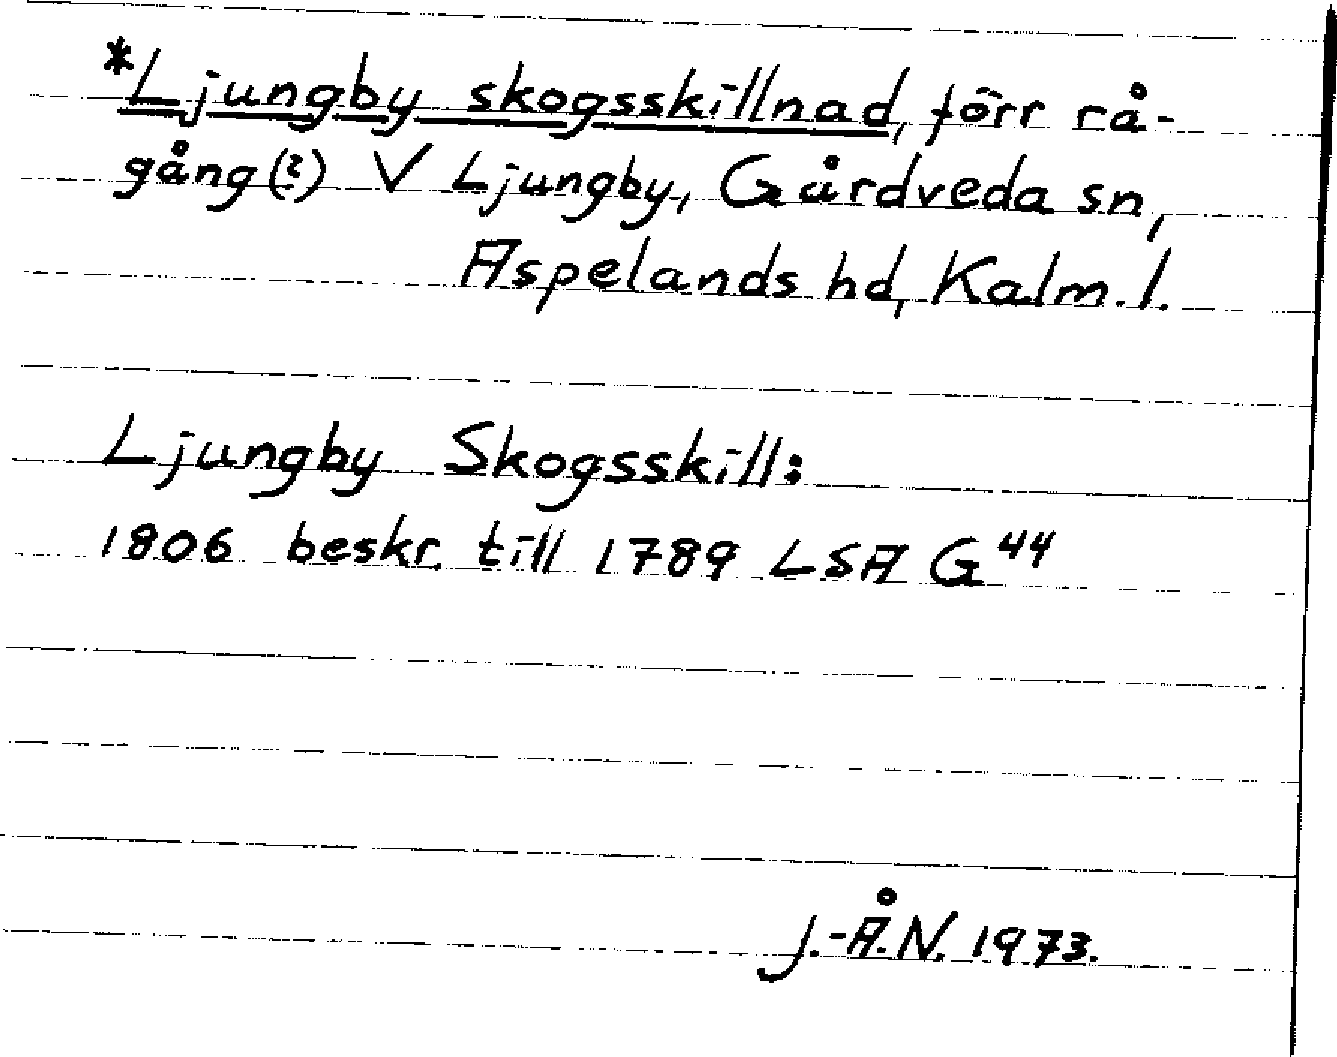 *Ljungby skogsskillnad, förr rå-
gång(?) V Ljungby, Gårdveda sn,
Aspelands hd, Kalm. l.
Ljungby Skogsskill:
1806 beskr. till 1789 LSA G44
J.-Å.N. 1973.